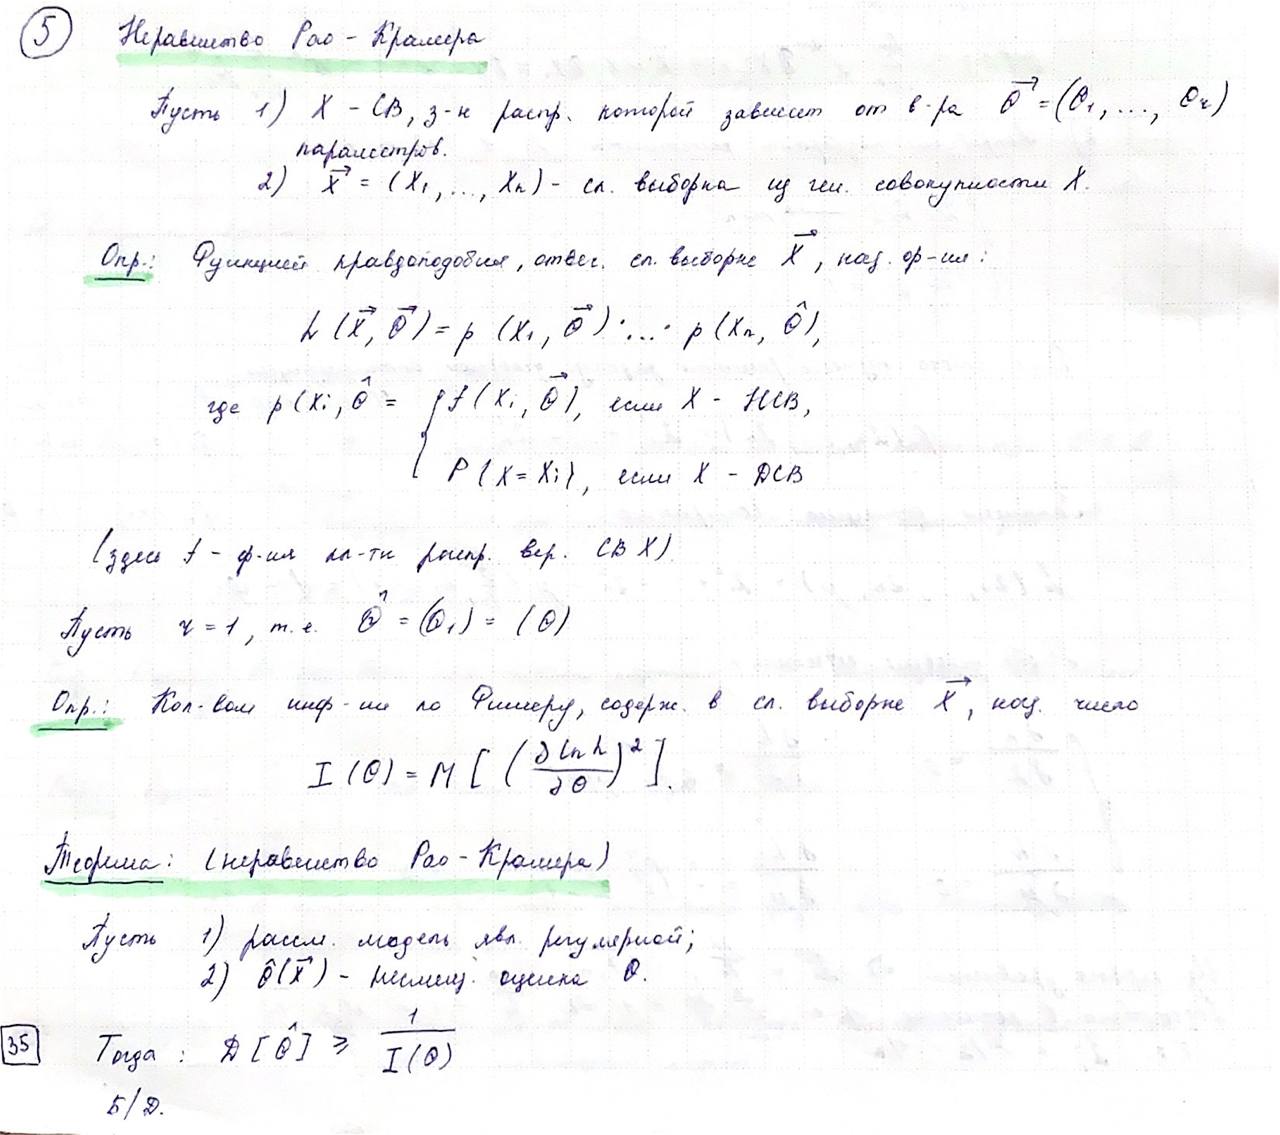 5 Неравенство Рао - Крамера
Пусть 1) X - СВ, з-н распр. которой зависит от в-ра θ⃗ = (θ₁, ..., θᵣ)
параметров.
2) X⃗ = (X₁, ..., Xₙ) - сл. выборка из ген. совокупности X.
Опр.: Функцией правдоподобия, отвеч. сл. выборке X⃗, наз. ф-ия:
L (X⃗, θ⃗) = p (X₁, θ⃗) · ... · p (Xₙ, θ̂),
где p (Xᵢ, θ̂ = { f (Xᵢ, θ⃗), если X - НСВ,
P {X = Xᵢ}, если X - ДСВ
(здесь f - ф-ия пл-ти распр. вер. СВ X)
Пусть r = 1, т.е. θ̂ = (θ₁) = (θ)
Опр.: Кол-вом инф-ии по Фишеру, содерж. в сл. выборке X⃗, наз. число
I (θ) = M [ ( ∂ ln L / ∂θ )² ].
Теорема: (неравенство Рао - Крамера)
Пусть 1) рассм. модель явл. регулярной;
2) θ̂ (X⃗) - несмещ. оценка θ.
35 Тогда: D [θ̂] ≥ 1 / I (θ)
Б/Д.